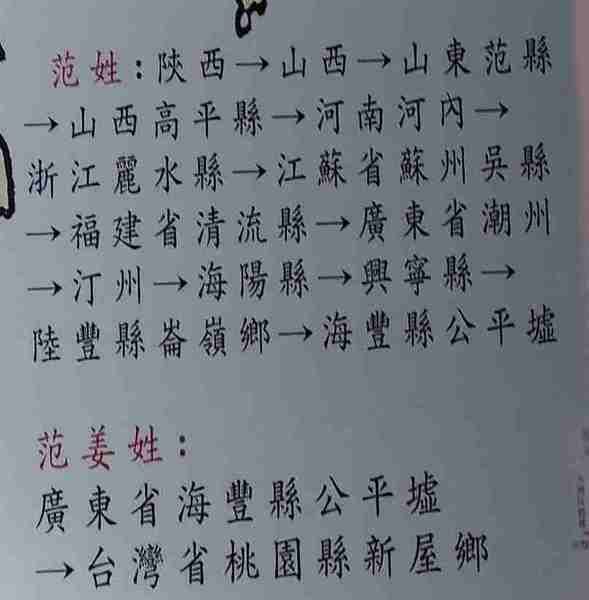 范姓：陝西→山西→山東范縣
→山西高平縣→河南河內→
浙江麗水縣→江蘇省蘇州吳縣
→福建省清流縣→廣東省潮州
→汀州→海陽縣→興寧縣→
陸豐縣崙嶺鄉→海豐縣公平墟
范姜姓：
廣東省海豐縣公平墟
→台灣省桃園縣新屋鄉